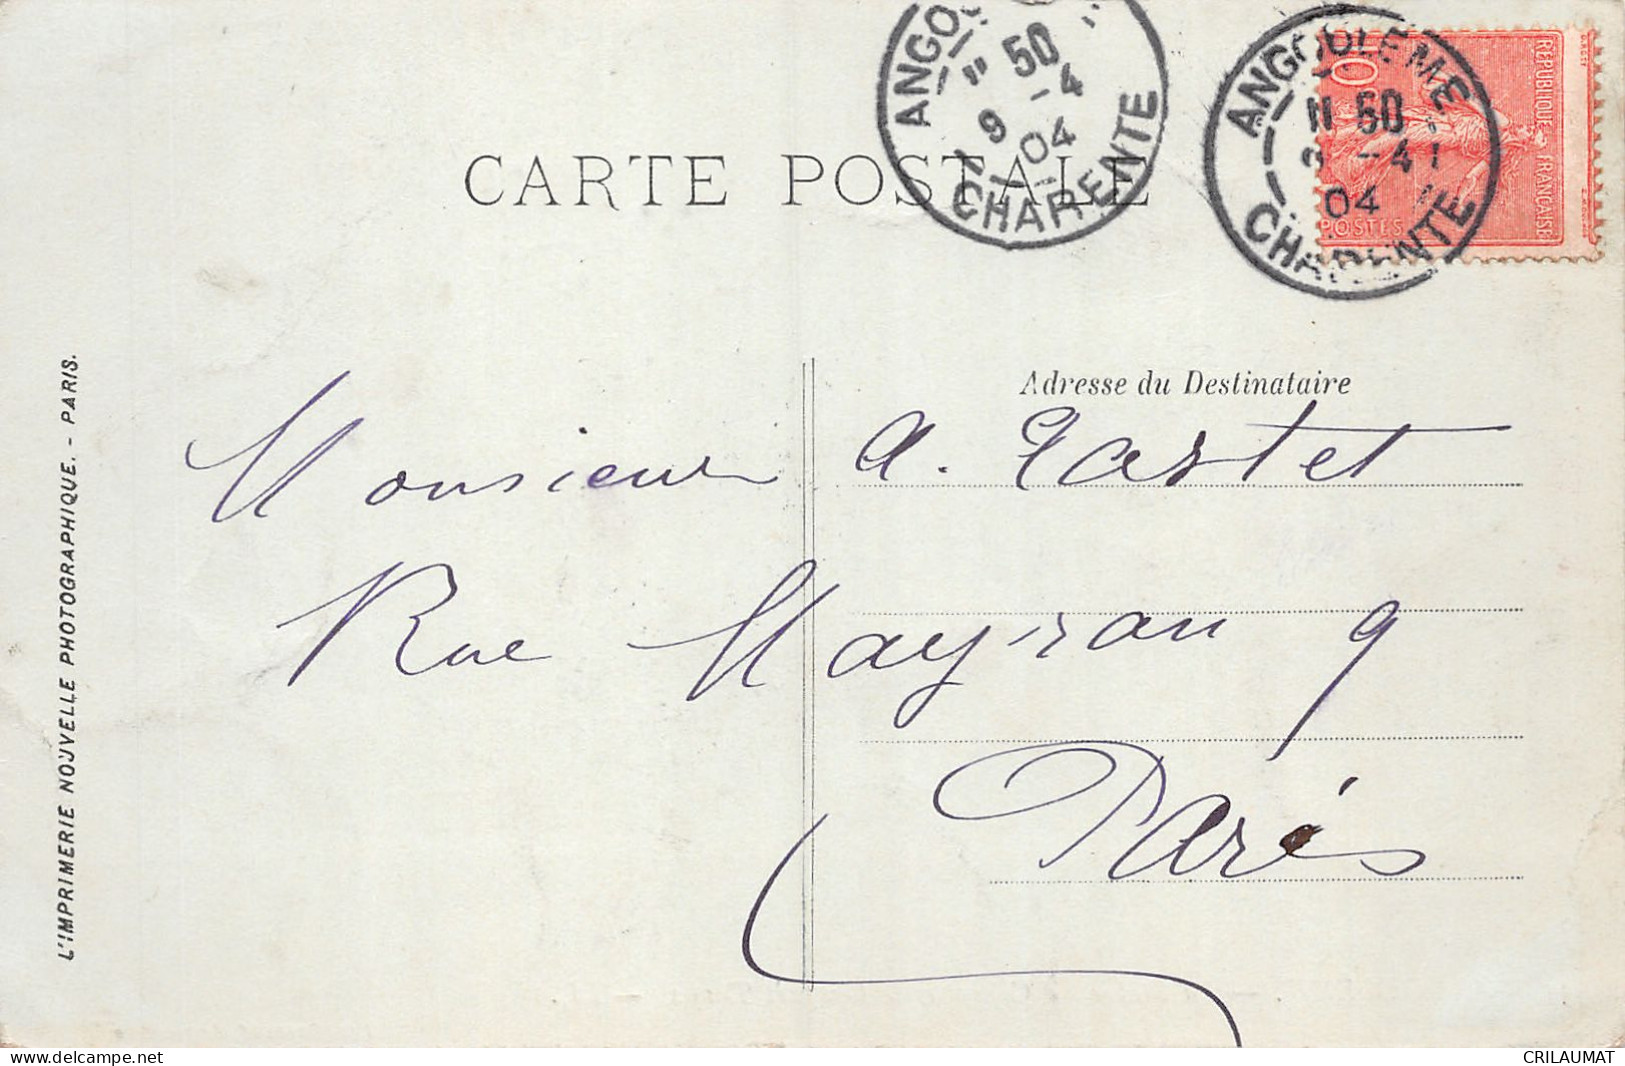 ANGO
11 50
9 -4
04
CHARENTE
ANGOULEME
11 50
-4
04
CHARENTE
10
REPUBLIQUE FRANÇAISE
POSTES
CARTE POSTALE
Adresse du Destinataire
Monsieur A. Tastet
Rue Mayran 9
Paris
L'IMPRIMERIE NOUVELLE PHOTOGRAPHIQUE. - PARIS.
delcampe.net
CRILAUMAT